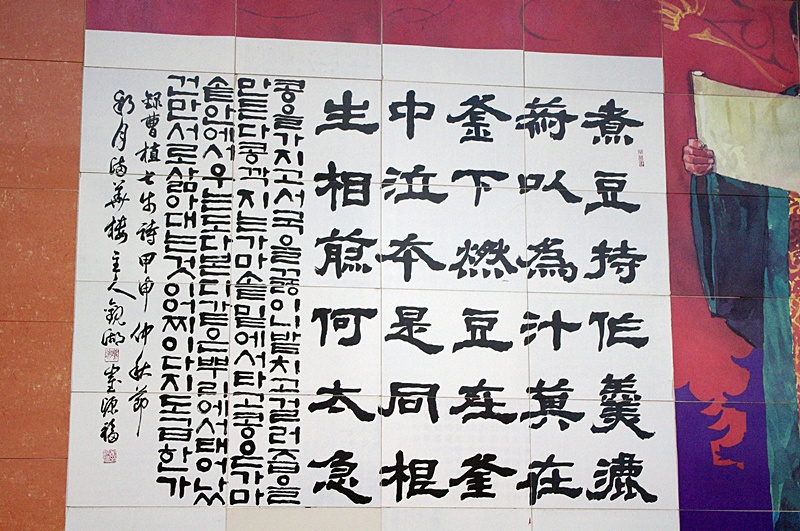 煮豆持作羹漉
菽以為汁萁在
釜下燃豆在釜
中泣本是同根
生相煎何太急
콩을가지고서국을끓이니발치고걸러즙을
만든다콩깍지는가마솥밑에서타고콩은가마
솥안에서우는도다본디같은뿌리에서태어났
건만서로삶아대는것이어찌이다지도급한가
錄曹植七步詩甲申仲秋節
月滿華樓主人觀湖崔源福